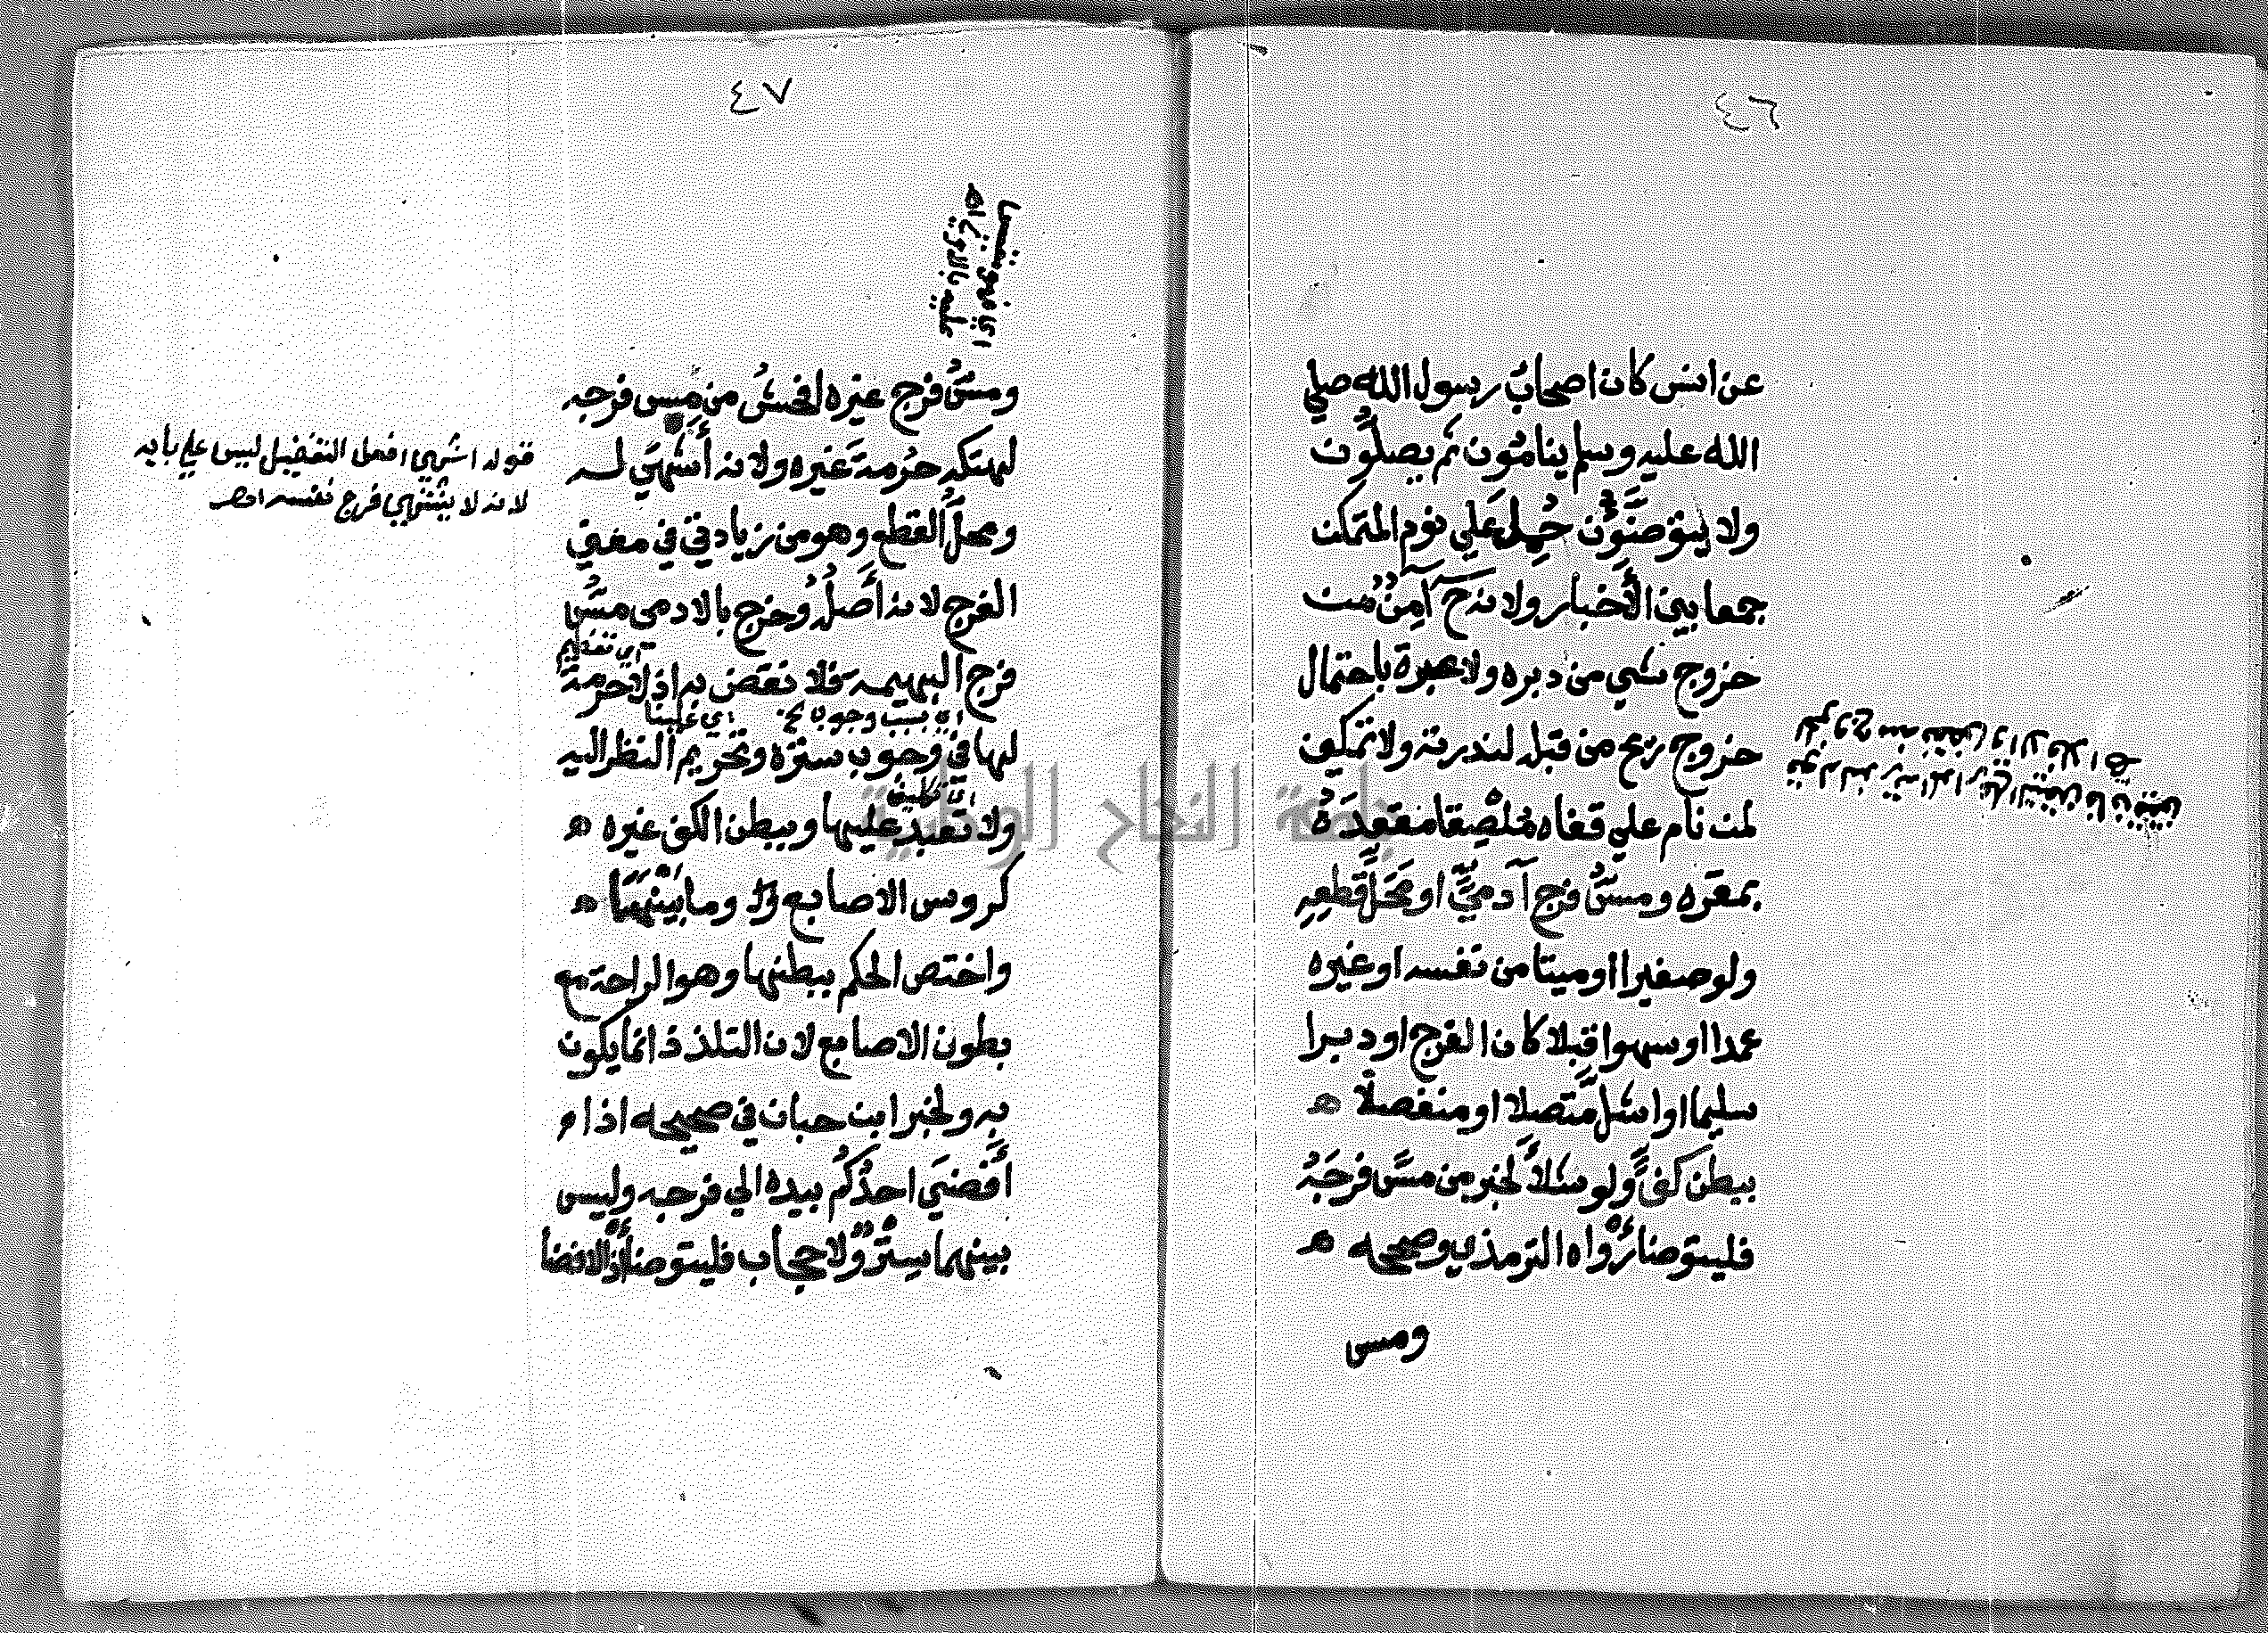 ٤٦
عن انس كان اصحاب رسول الله صلي
الله عليه وسلم ينامون ثم يصلون
ولا يتوضئون حمل علي نوم الممكن
جمعا بين الأخبار ولانه ح آمن من
خروج شي من دبره ولا عبرة باحتمال
خروج ريح من قبل لندرته ولا تمكين
لمن نام علي قفاه ملصقا مقعده
بمقره ومس فرج آدمي او محل قطعه
ولو صغيرا او ميتا من نفسه او غيره
عمدا او سهوا قبلا كان الفرج او دبرا
سليما او اشل متصلا او منفصلا ه
ببطن كف ولو شلاء لخبر من مس فرجه
فليتوضا رواه الترمذي وصححه ه
ومس
٤٧
ومس فرج غيره افحش من مس فرجه
لهتكه حرمة غيره ولانه أشهي له
ومحل القطع وهو من زيادتي في معني
الفرج لانه أصله وخرج بالادمي مس
فرج البهيمة فلا نقض به اذ لا حرمة
لها في وجوب ستره وتحريم النظر اليه
ولا تعبد عليها وببطن الكف غيره ه
كروس الاصابع وما بينهما ه
واختص الحكم ببطنها وهو الراحة مع
بطون الاصابع لان التلذذ انما يكون
به ولخبر ابن حبان في صحيحه اذا م
أفضي احدكم بيده الي فرجه وليس
بينهما ستر ولا حجاب فليتوضا اذ الافضا
قوله اشهي افعل التفضيل ليس علي بابه
لانه لا يشتهي فرج نفسه
جامعة النجاح الوطنية